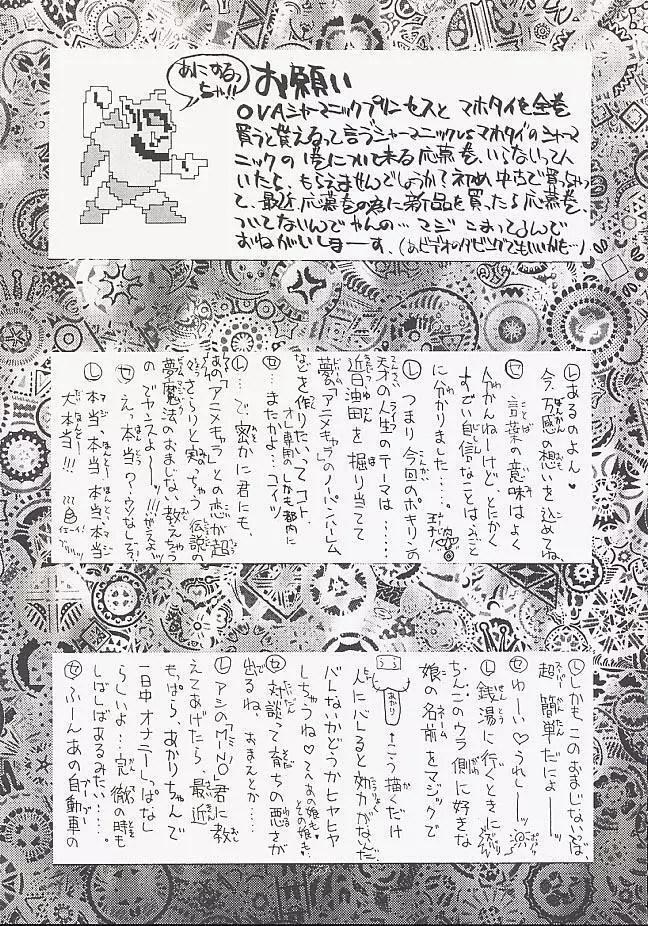 あにするっ
ちゃ!!
お願い
OVAシャーマニックプリンセスと マホタイを全巻
買うと貰えるって言うシャーマニックVSマホタイのシャー
マニックの1巻について来る応募巻、いらないって人
いたら、もらえませんでしょうか?初め中古で買っちゃっ
て、最近、応募巻の為に新品を買ったら応募巻、
ついてないんでやんの… マジ こまってるんで
おねがいしまーす、(あとビデオのダビングでもいいかも…)
Ⓛあるのよん♥
今、万感の想いを込めてね、
Ⓢ言葉の意味はよく
分かんねーけど、とにかく
すごい自信なことはみごと
に分かりました……。
Ⓛつまり今回のポキリンの
天才の人生のテーマは……
近日油田を掘り当てて
夢の「アニメキャラ」のノーパンハーレム、
などを作りたい、ってコト、
オレ専用のしかも都内に
またかよ…コイツ
Ⓛ…で、密かに君にも、
あの「アニメキャラ」との恋が超
さらりと実っちゃう伝説の
夢魔法のおまじない、教えちゃう
のでヤンスよーッ!!!
えっ本当?ウソなしで?
Ⓛ本当、本当、本当、本当
大本当!!!
Ⓛしかもこのおまじないは、
超簡単だによーッ
わーい♡うれしーッ
Ⓛ銭湯に行くときに
ちんこのウラ側に好きな
娘の名前をマジックで
あかり
←こう描くだけ
人にバレると効力がないんだ、
バレないかどうかヒヤヒヤ
しちゃうね♡てへ
対談って育ちの悪さが
出るね、おまえとか……
ⓁアシのMINO君に教
えてあげたら、最近
もっぱら、あかりちゃんで
一日中オナニーしっぱなし
らしいよ…完徹の時も
しばしばあるみたい……。
ふーんあの自動車の